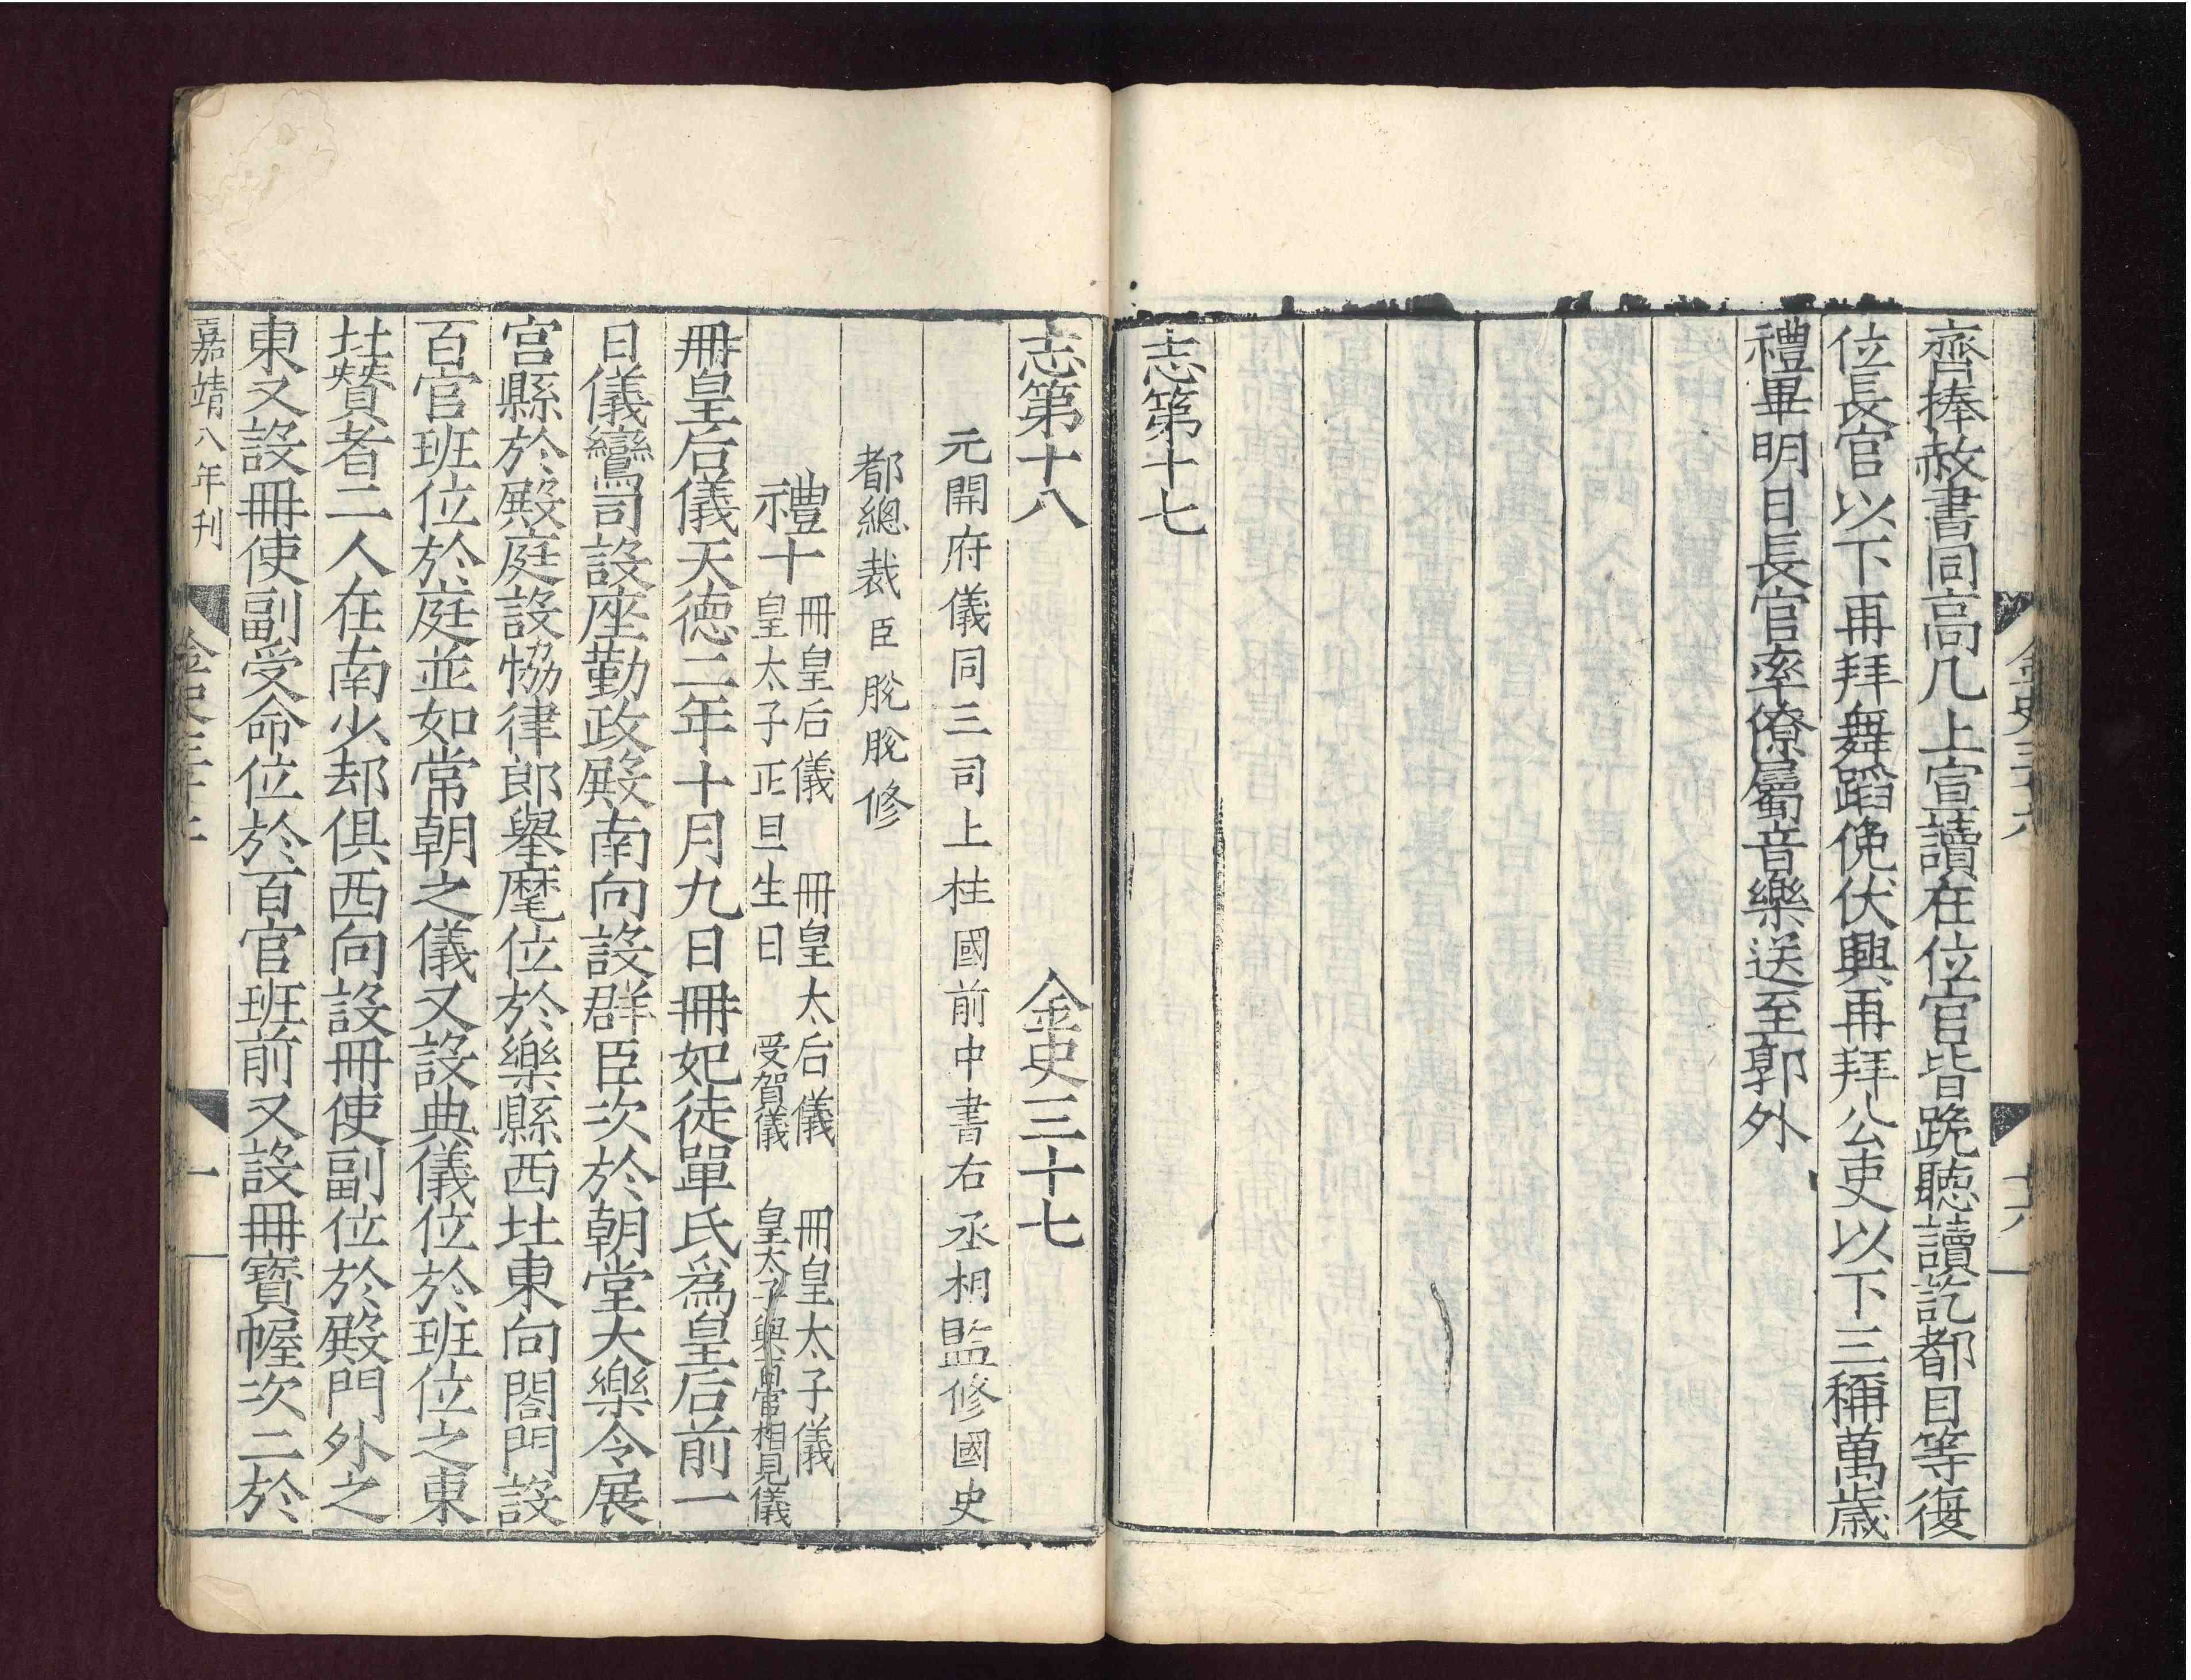 金史三十六
十六
齊捧赦書同高几上宣讀在位官皆跪聽讀訖都目等復
位長官以下再拜舞蹈俛伏興再拜公吏以下三稱萬歲
禮畢明日長官率僚屬音樂送至郭外
志第十七
志第十八 金史三十七
元開府儀同三司上柱國前中書右丞相監修國史
都總裁臣脫脫修
禮十
冊皇后儀 冊皇太后儀 冊皇太子儀
皇太子正旦生日 受賀儀 皇太子與百官相見儀
冊皇后儀天德二年十月九日冊妃徒單氏爲皇后前一
日儀鸞司設座勤政殿南向設群臣次於朝堂大樂令展
宮縣於殿庭設恊律郎舉麾位於樂縣西北東向閤門設
百官班位於庭並如常朝之儀又設典儀位於班位之東
北贊者二人在南少却俱西向設冊使副位於殿門外之
東又設冊使副受命位於百官班前又設冊寶幄次二於
嘉靖八年刊
金史三十七
一